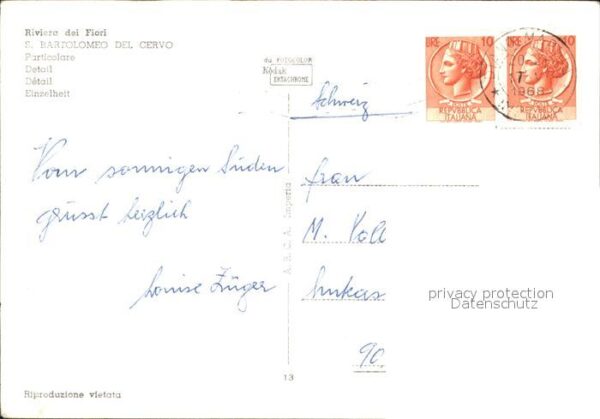 Riviera dei Fiori
S. BARTOLOMEO DEL CERVO
Particolare
Detail
Détail
Einzelheit
da FOTOCOLOR
Kodak
EKTACHROME
LIRE 10
REPVBBLICA
ITALIANA
10
REPVBBLICA
ITALIANA
1968
Schweiz
Vom sonnigen Süden
grüsst herzlich
Louise Züger
Frau
M. Voll
Lukas
90
A.R.C.A. Imperia
13
Riproduzione vietata
privacy protection
Datenschutz